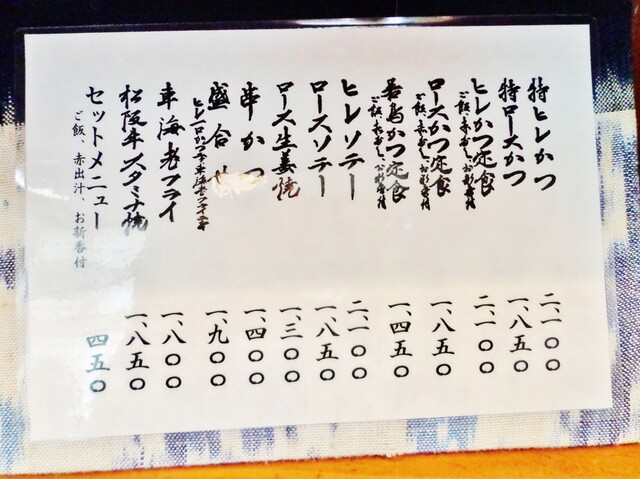 特ヒレかつ 二、一〇〇
特ロースかつ 一、八五〇
ヒレかつ定食 二、一〇〇
ご飯、赤だし、お新香付
ロースかつ定食 一、八五〇
ご飯、赤だし、お新香付
若鳥かつ定食 一、四五〇
ご飯、赤だし、お新香付
ヒレソテー 二、一〇〇
ロースソテー 一、八五〇
ロース生姜焼 一、三〇〇
串かつ 一、四〇〇
盛合せ 一、九〇〇
車海老フライ 一、八〇〇
松阪牛スタミナ焼 一、八五〇
セットメニュー 四五〇
ご飯、赤出汁、お新香付